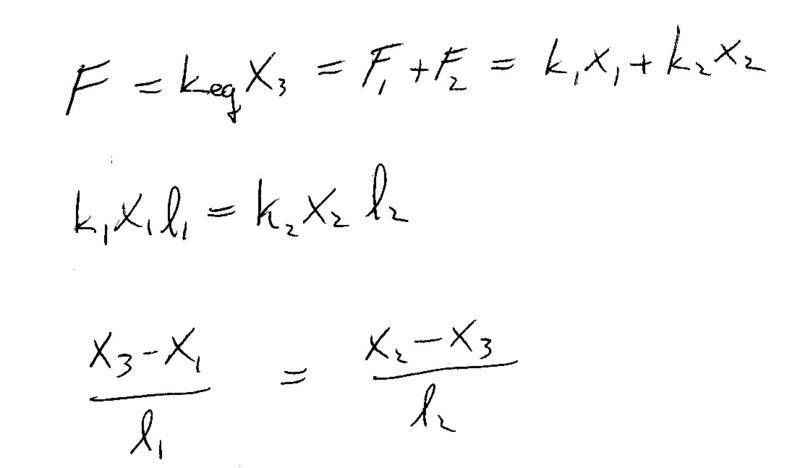 F = k_eq x_3 = F_1 + F_2 = k_1 x_1 + k_2 x_2
k_1 x_1 l_1 = k_2 x_2 l_2
(x_3 - x_1) / l_1 = (x_2 - x_3) / l_2